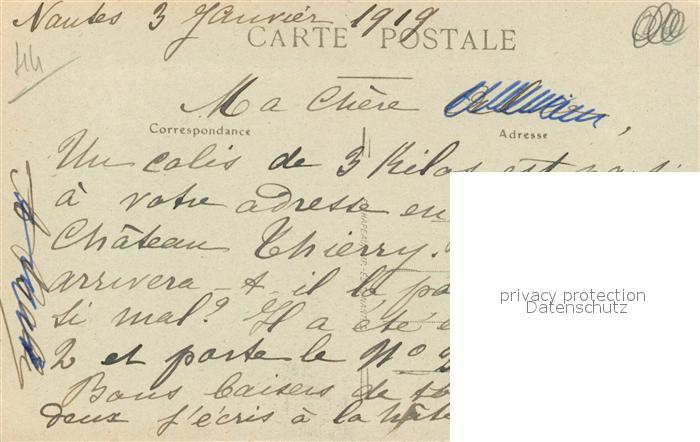 Nantes 3 Janvier 1919
CARTE POSTALE
44
Ma Chère
Correspondance
Adresse
Un colis de 3 Kilos est
à votre adresse en
Château Thierry.
arrivera-t-il là
si mal? Il a été
2 et porte le No
Bons baisers de
deux j'écris à la hâte
privacy protection
Datenschutz